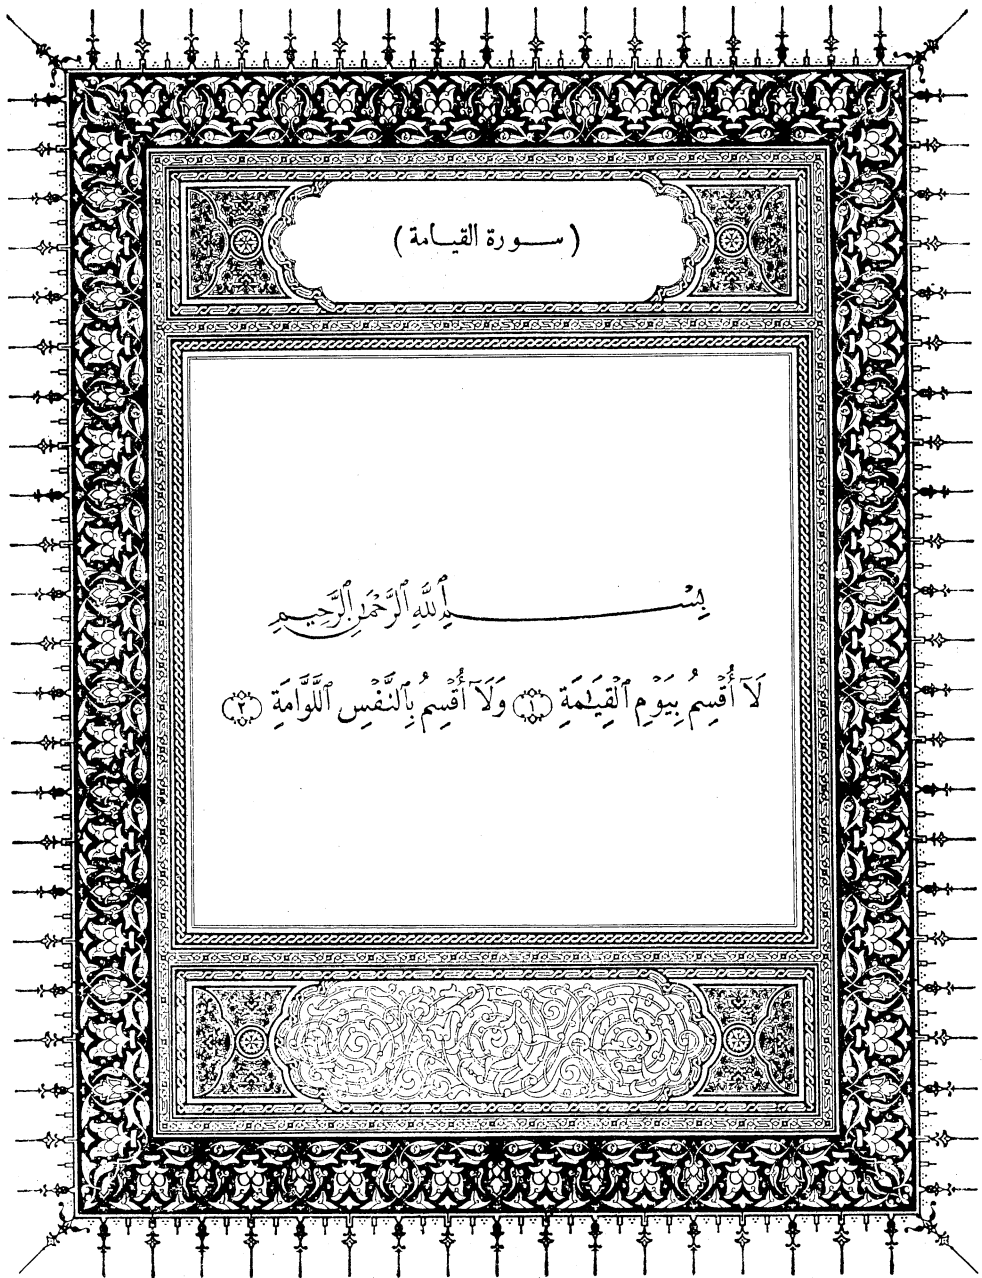 ( سـورة القيـامة )
بِسْـــــمِ ٱللَّهِ ٱلرَّحْمَٰنِ ٱلرَّحِيمِ
لَآ أُقْسِمُ بِيَوْمِ ٱلْقِيَـٰمَةِ ١ وَلَآ أُقْسِمُ بِٱلنَّفْسِ ٱللَّوَّامَةِ ٢